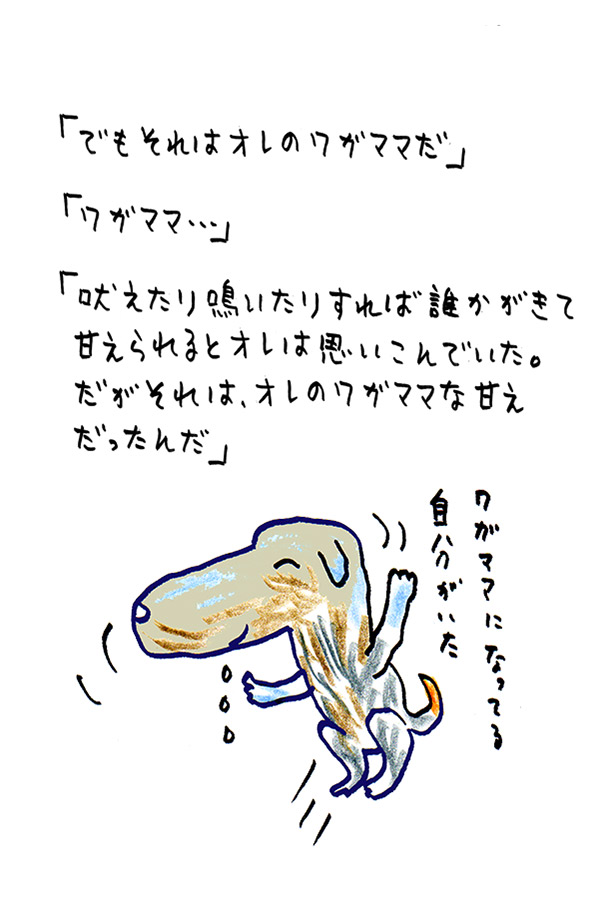 「でもそれはオレのワガママだ」
「ワガママ…」
「吠えたり鳴いたりすれば誰かがきて
甘えられるとオレは思いこんでいた。
だがそれは、オレのワガママな甘え
だったんだ」
ワガママになってる
自分がいた